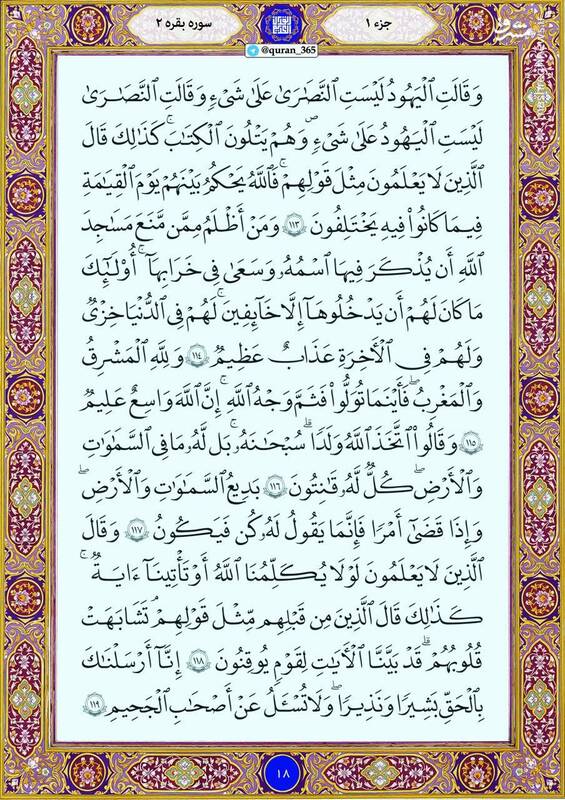 جزء ۱
سوره بقره ۲
@quran_365
مشرق
وَقَالَتِ ٱلۡيَهُودُ لَيۡسَتِ ٱلنَّصَٰرَىٰ عَلَىٰ شَيۡءٖ وَقَالَتِ ٱلنَّصَٰرَىٰ
لَيۡسَتِ ٱلۡيَهُودُ عَلَىٰ شَيۡءٖ وَهُمۡ يَتۡلُونَ ٱلۡكِتَٰبَۗ كَذَٰلِكَ قَالَ
ٱلَّذِينَ لَا يَعۡلَمُونَ مِثۡلَ قَوۡلِهِمۡۚ فَٱللَّهُ يَحۡكُمُ بَيۡنَهُمۡ يَوۡمَ ٱلۡقِيَٰمَةِ
فِيمَا كَانُواْ فِيهِ يَخۡتَلِفُونَ ١١٣ وَمَنۡ أَظۡلَمُ مِمَّن مَّنَعَ مَسَٰجِدَ
ٱللَّهِ أَن يُذۡكَرَ فِيهَا ٱسۡمُهُۥ وَسَعَىٰ فِي خَرَابِهَآۚ أُوْلَٰٓئِكَ
مَا كَانَ لَهُمۡ أَن يَدۡخُلُوهَآ إِلَّا خَآئِفِينَۚ لَهُمۡ فِي ٱلدُّنۡيَا خِزۡيٞ
وَلَهُمۡ فِي ٱلۡأٓخِرَةِ عَذَابٌ عَظِيمٞ ١١٤ وَلِلَّهِ ٱلۡمَشۡرِقُ
وَٱلۡمَغۡرِبُۚ فَأَيۡنَمَا تُوَلُّواْ فَثَمَّ وَجۡهُ ٱللَّهِۚ إِنَّ ٱللَّهَ وَٰسِعٌ عَلِيمٞ
١١٥ وَقَالُواْ ٱتَّخَذَ ٱللَّهُ وَلَدٗاۗ سُبۡحَٰنَهُۥۖ بَل لَّهُۥ مَا فِي ٱلسَّمَٰوَٰتِ
وَٱلۡأَرۡضِۖ كُلّٞ لَّهُۥ قَٰنِتُونَ ١١٦ بَدِيعُ ٱلسَّمَٰوَٰتِ وَٱلۡأَرۡضِۖ
وَإِذَا قَضَىٰٓ أَمۡرٗا فَإِنَّمَا يَقُولُ لَهُۥ كُن فَيَكُونُ ١١٧ وَقَالَ
ٱلَّذِينَ لَا يَعۡلَمُونَ لَوۡلَا يُكَلِّمُنَا ٱللَّهُ أَوۡ تَأۡتِينَآ ءَايَةٞۗ
كَذَٰلِكَ قَالَ ٱلَّذِينَ مِن قَبۡلِهِم مِّثۡلَ قَوۡلِهِمۡۘ تَشَٰبَهَتۡ
قُلُوبُهُمۡۗ قَدۡ بَيَّنَّا ٱلۡأٓيَٰتِ لِقَوۡمٖ يُوقِنُونَ ١١٨ إِنَّآ أَرۡسَلۡنَٰكَ
بِٱلۡحَقِّ بَشِيرٗا وَنَذِيرٗاۖ وَلَا تُسۡـَٔلُ عَنۡ أَصۡحَٰبِ ٱلۡجَحِيمِ ١١٩
١٨